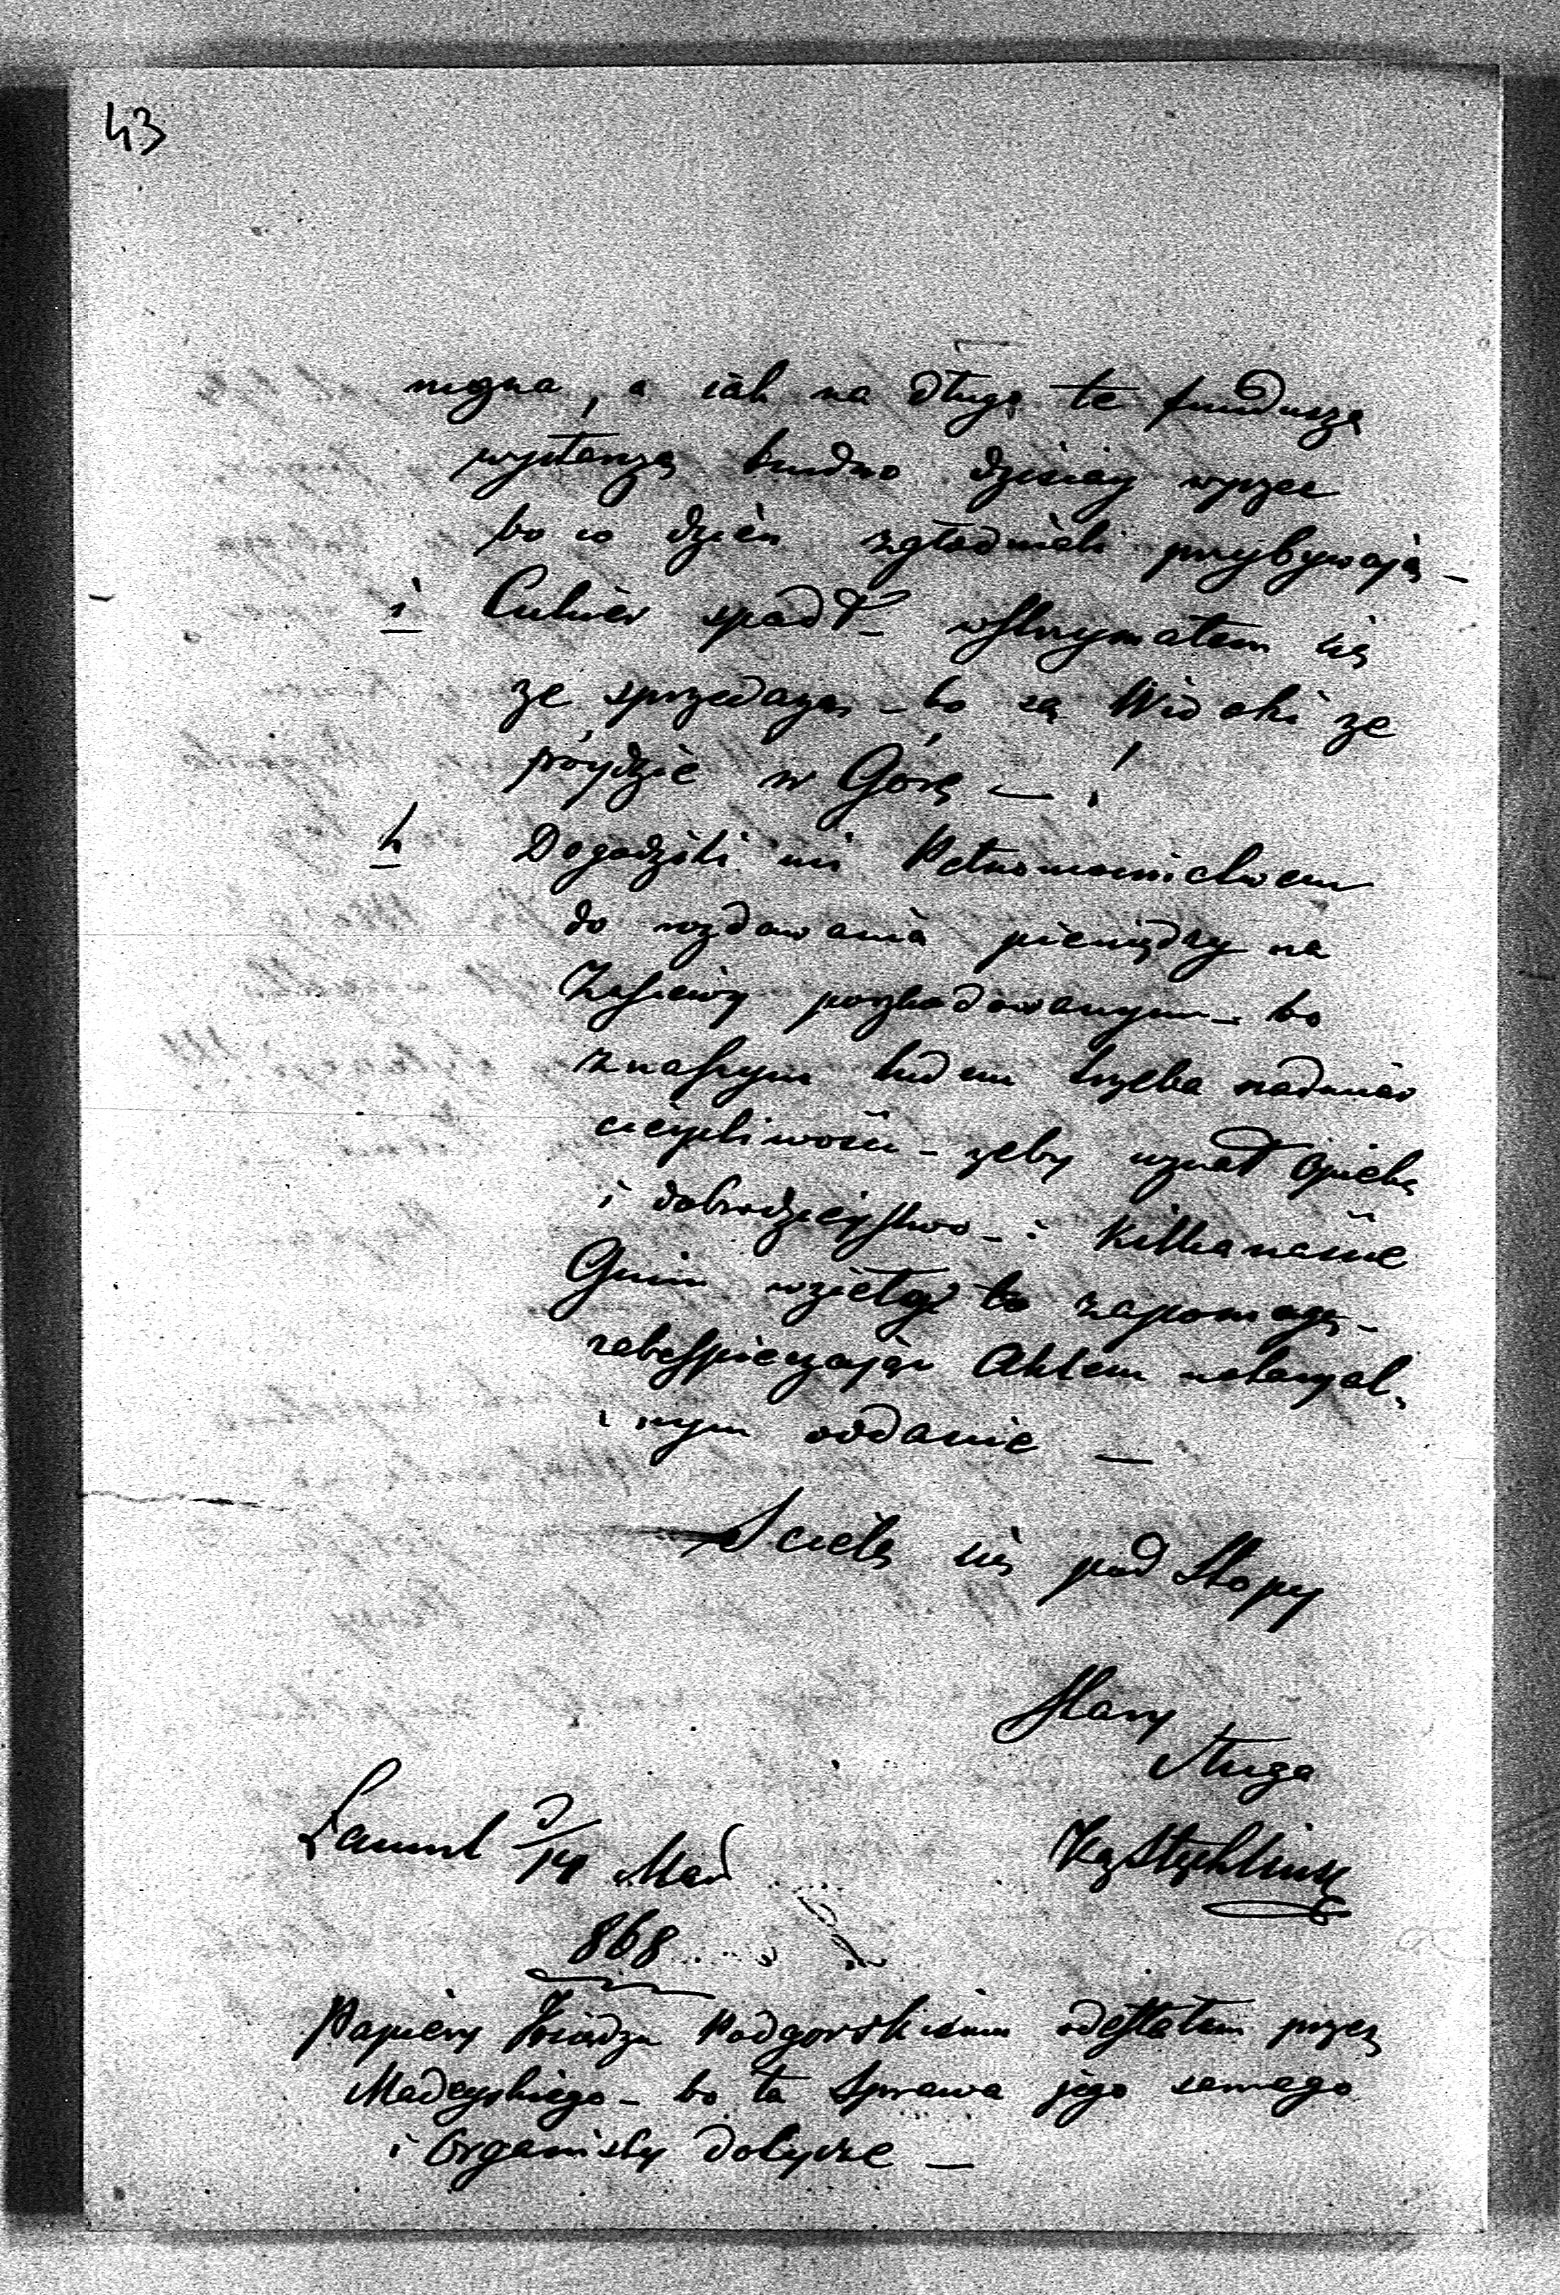 43
można, a iak na długo te fundusze
wystarczą trudno dzisiay wyrzec
bo co dzień zgłodnieli przybywają –
i Cukier spadł – wstrzymałem się
ze sprzedażą – bo są Widoki ze
póydzie w Górę – !
k Dogodzili mi Pełnomocnictwem
do rozdawania pieniędzy na
Zasiewy poszkodowanym – bo
z naszym ludem trzeba nadmiar
cierpliwości – zeby uznał opiekę
i dobrodzieystwo – i kilkanaście
Gmin wzięły tę zapomogę –
zabespieczając Aktem notaryal-
nym oddanie –
Scielę się pod Stopy
Stary
Sługa
Łańcut d/14 Mar
868
Papiery Xiędzu Podgorskiemu odesłałem przez
Madeyskiego – bo ta Sprawa jego samego
i Organisty dotycze –